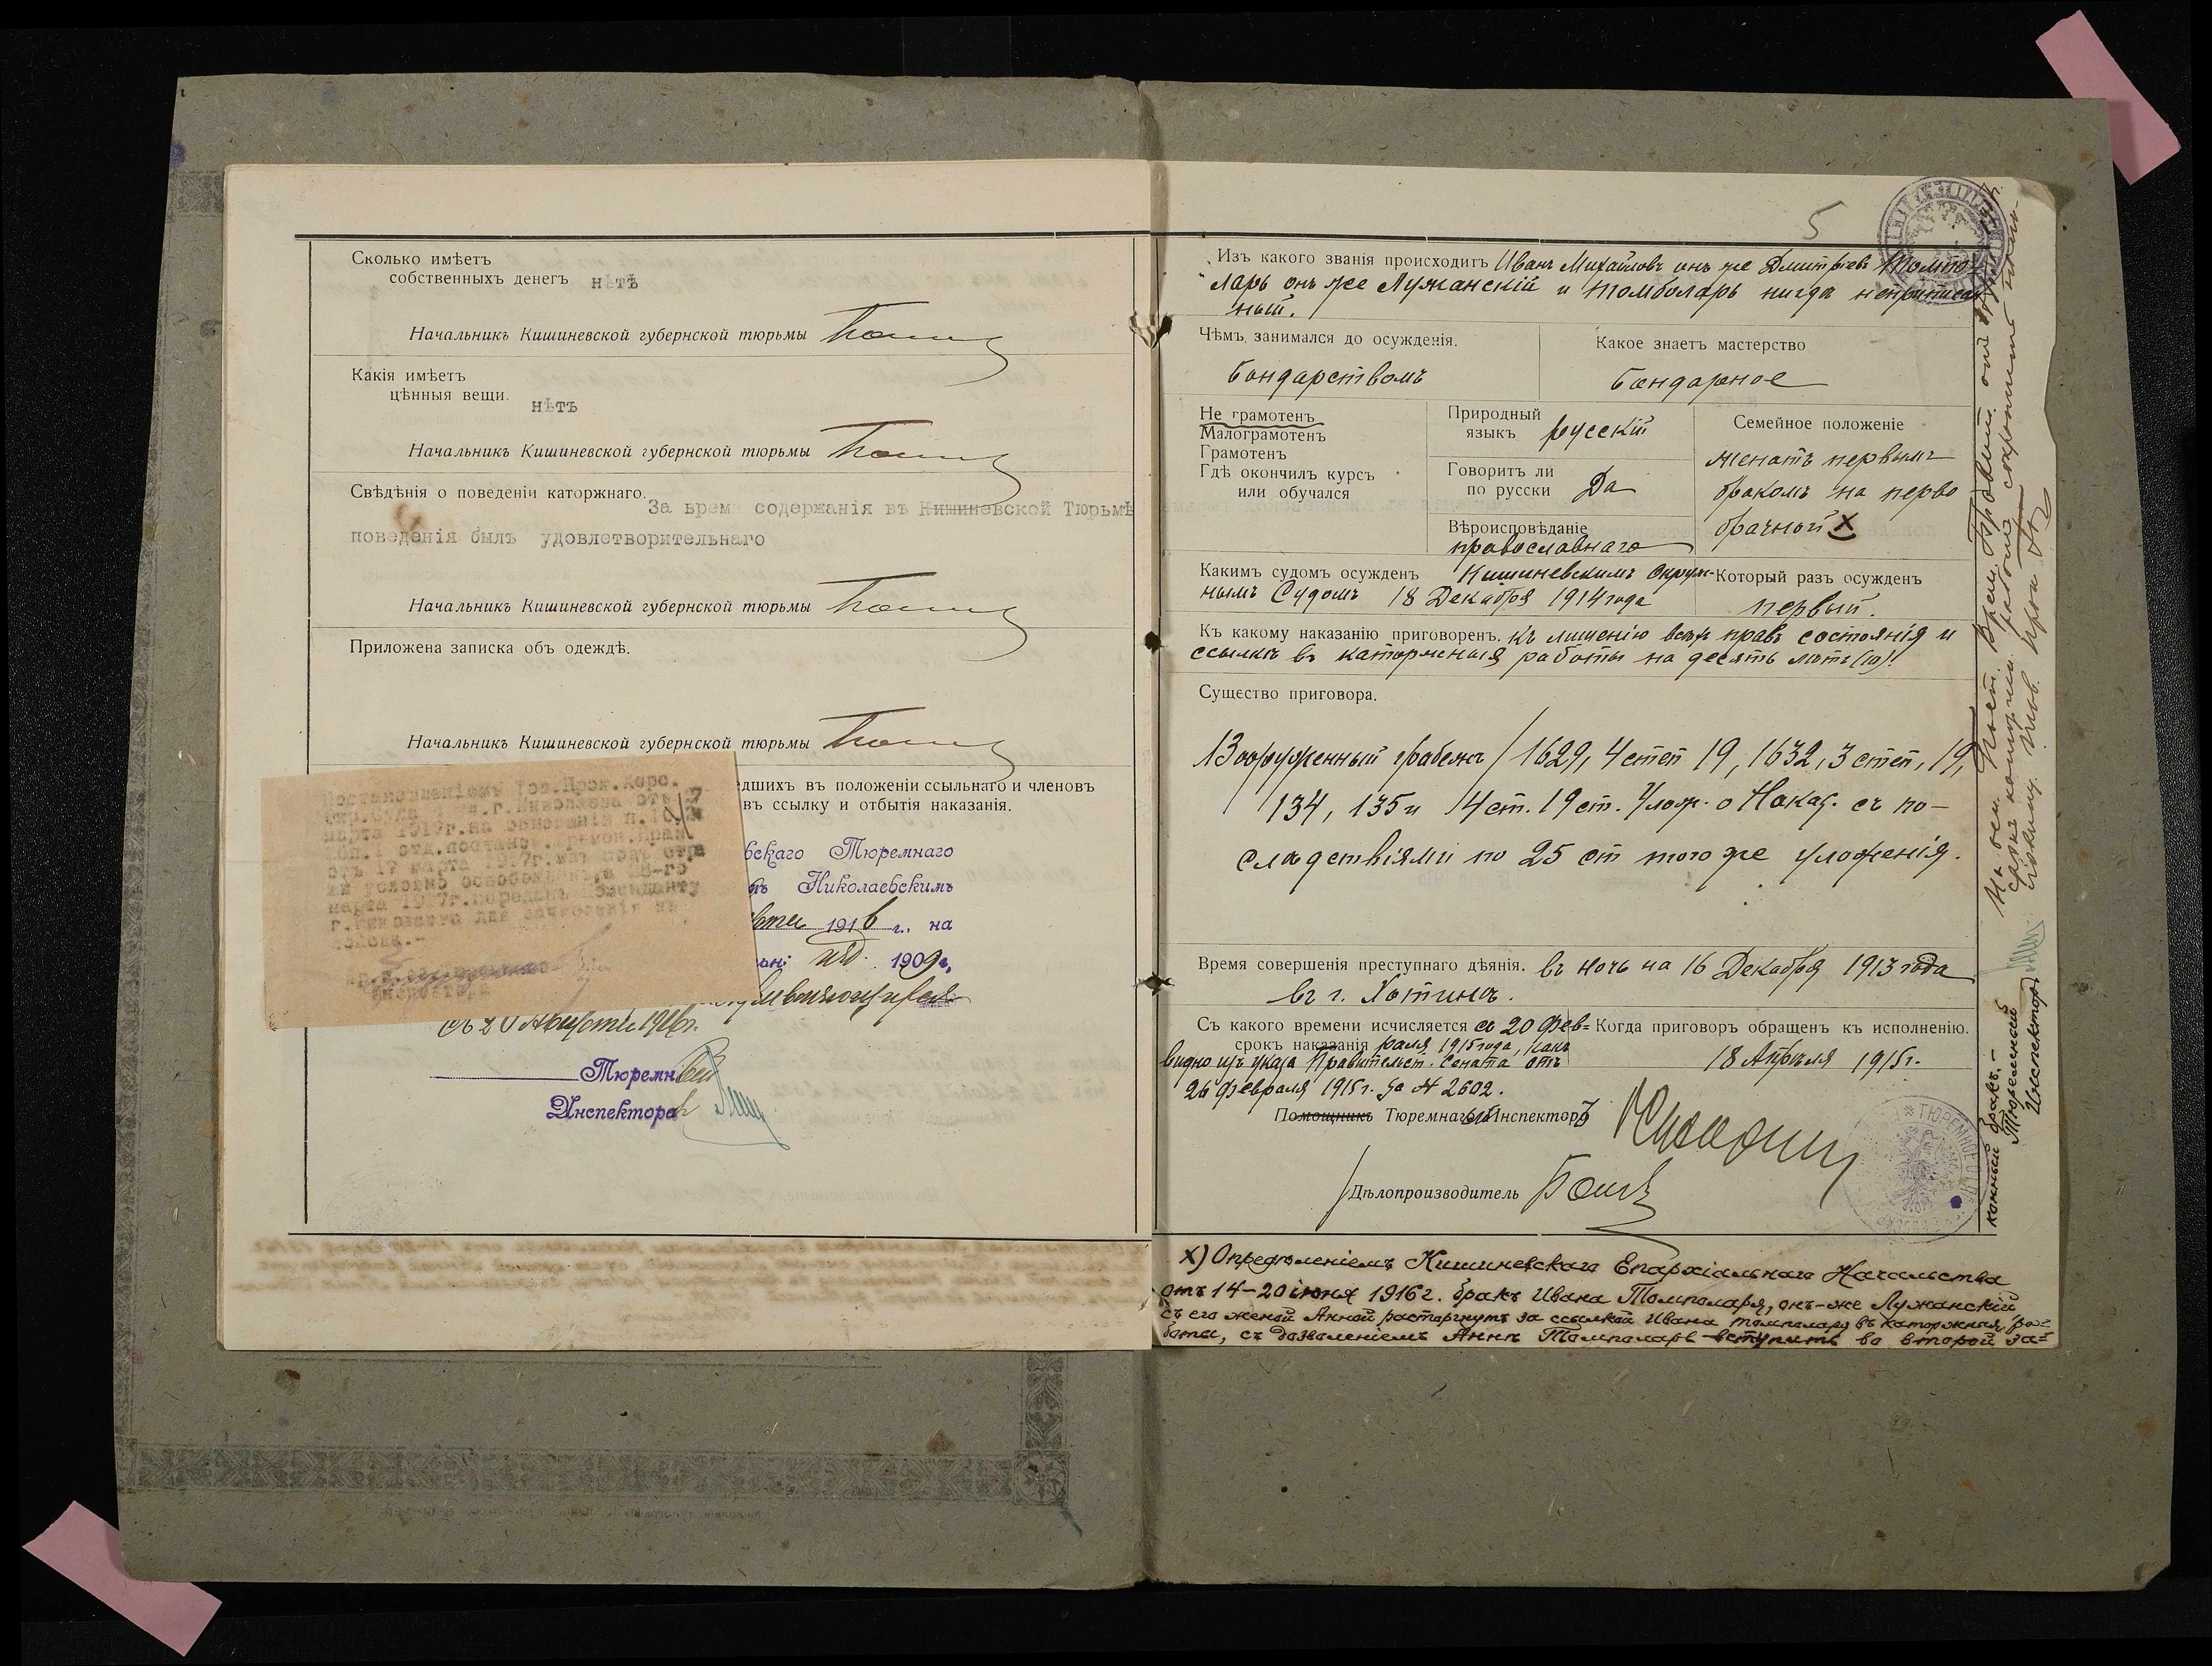 Сколько имѣетъ
собственныхъ денегъ нѣтъ
Начальникъ Кишиневской губернской тюрьмы
Какія имѣетъ
цѣнныя вещи.
нѣтъ
Начальникъ Кишиневской губернской тюрьмы
Свѣдѣнія о поведеніи каторжнаго.
За врем содержанія въ Кишиневской Тюрьмѣ
поведенія былъ удовлетворительнаго
Начальникъ Кишиневской губернской тюрьмы
Приложена записка объ одеждѣ.
Начальникъ Кишиневской губернской тюрьмы
едшихъ въ положеніи ссыльнаго и членовъ
въ ссылку и отбытія наказанія.
Постановленіемъ Тов.Прок.Херс.
Окр.Суда г.Николаева отъ
марта 1917г.на основаніи п.
отд.постанов.Времен.Прав
отъ 17 марта 1917г.
условно освобожденъ, 28-го
марта 1917г.переданъ Коменданту
г.Николаева для зачисленія въ
Инспектора
вскаго Тюремнаго
Николаевскимъ
1916 г., на
1909 г.,
съ 20 Августа 1916г.
Тюремный
Инспекторъ
5
Изъ какого званія происходитъ Иванъ Михайловъ онъ же Дмитріевъ Томпо-
ларь онъ же Лужанскій и Томболарь нигде неприписан-
ный.
Чѣмъ занимался до осужденія.
бондарствомъ
Какое знаетъ мастерство
бондарное
Не грамотенъ
Малограмотенъ
Грамотенъ
Гдѣ окончилъ курсъ
или обучался
Природный
языкъ русскій
Говоритъ ли
по русски Да
Вѣроисповѣданіе
православнаго
Семейное положеніе
женатъ первымъ
бракомъ на перво
брачной X
Какимъ судомъ осужденъ Кишиневскимъ Окруж-
нымъ Судомъ 18 Декабря 1914 года
Который разъ осужденъ
первый.
Къ какому наказанію приговоренъ. къ лишенію всѣхъ правъ состоянія и
ссылкѣ въ каторжныя работы на десять лѣтъ (10).
Существо приговора.
Вооруженный грабежъ / 1629, 4 степ 19, 1632, 3 степ, 19,
134, 135 и 14 ст. 19 ст. Улож. о Наказ. съ по-
слѣдствіями по 25 ст того же уложенія.
Время совершенія преступнаго дѣянія. въ ночь на 16 Декабря 1913 года
въ г. Хотинѣ.
Съ какого времени исчисляется съ 20 Фев-
срокъ наказанія раля 1915 года, какъ
видно изъ указа Правительст. Сената отъ
26 февраля 1915 г. за № 2602.
Когда приговоръ обращенъ къ исполненію.
18 Апрѣля 1915 г.
Помощникъ Тюремнаго Инспектора
Дѣлопроизводитель
ТЮРЕМНОЕ
X) Опредѣленіемъ Кишиневскаго Епархіальнаго Начальства
отъ 14-20 іюня 1916 г. бракъ Ивана Томполаря, онъ-же Лужанскій
съ его женой Анной расторгнутъ за ссылкой Ивана Томполаря въ каторжныя ра-
боты, съ дозволеніемъ Аннѣ Томполарь вступить во второй за-
конный бракъ.-
Тюремный
Инспекторъ
На осн. Врем. Правит. отъ
срокъ каторжн. работъ сократить